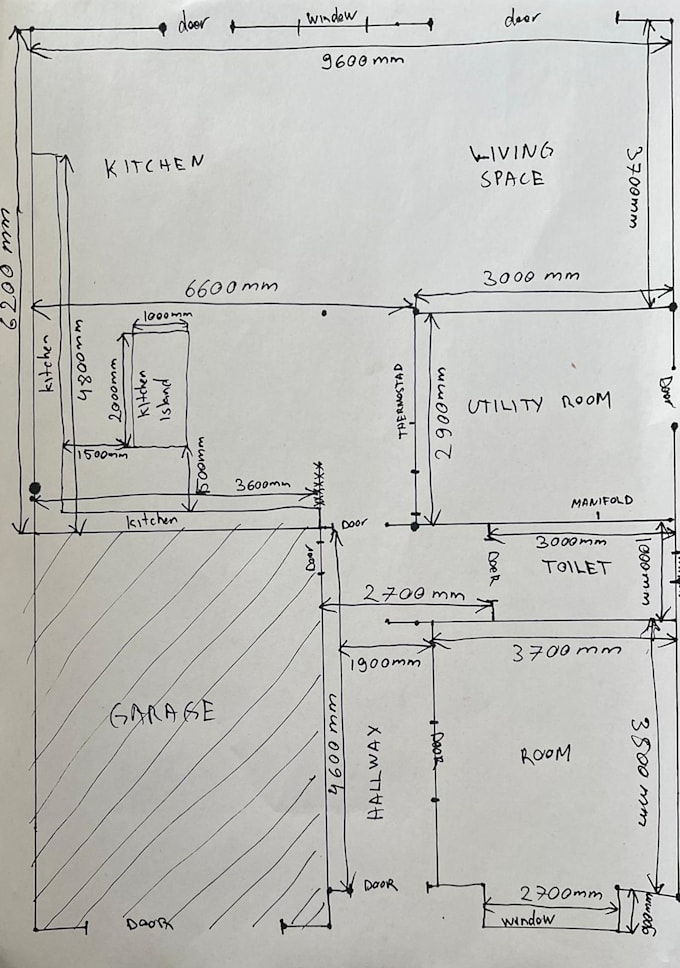 door
window
door
9600mm
KITCHEN
LIVING
SPACE
3700mm
6200 mm
6600mm
3000 mm
1000mm
kitchen
4800mm
2000mm
kitchen
Island
THERMOSTAD
2900mm
UTILITY ROOM
Door
1500mm
500mm
3600mm
MANIFOLD
kitchen
Door
3000mm
Door
Door
TOILET
1000mm
2700mm
1900mm
3700mm
GARAGE
4600mm
HALLWAY
Door
ROOM
3800mm
DOOR
2700mm
window
900mm
DOOR